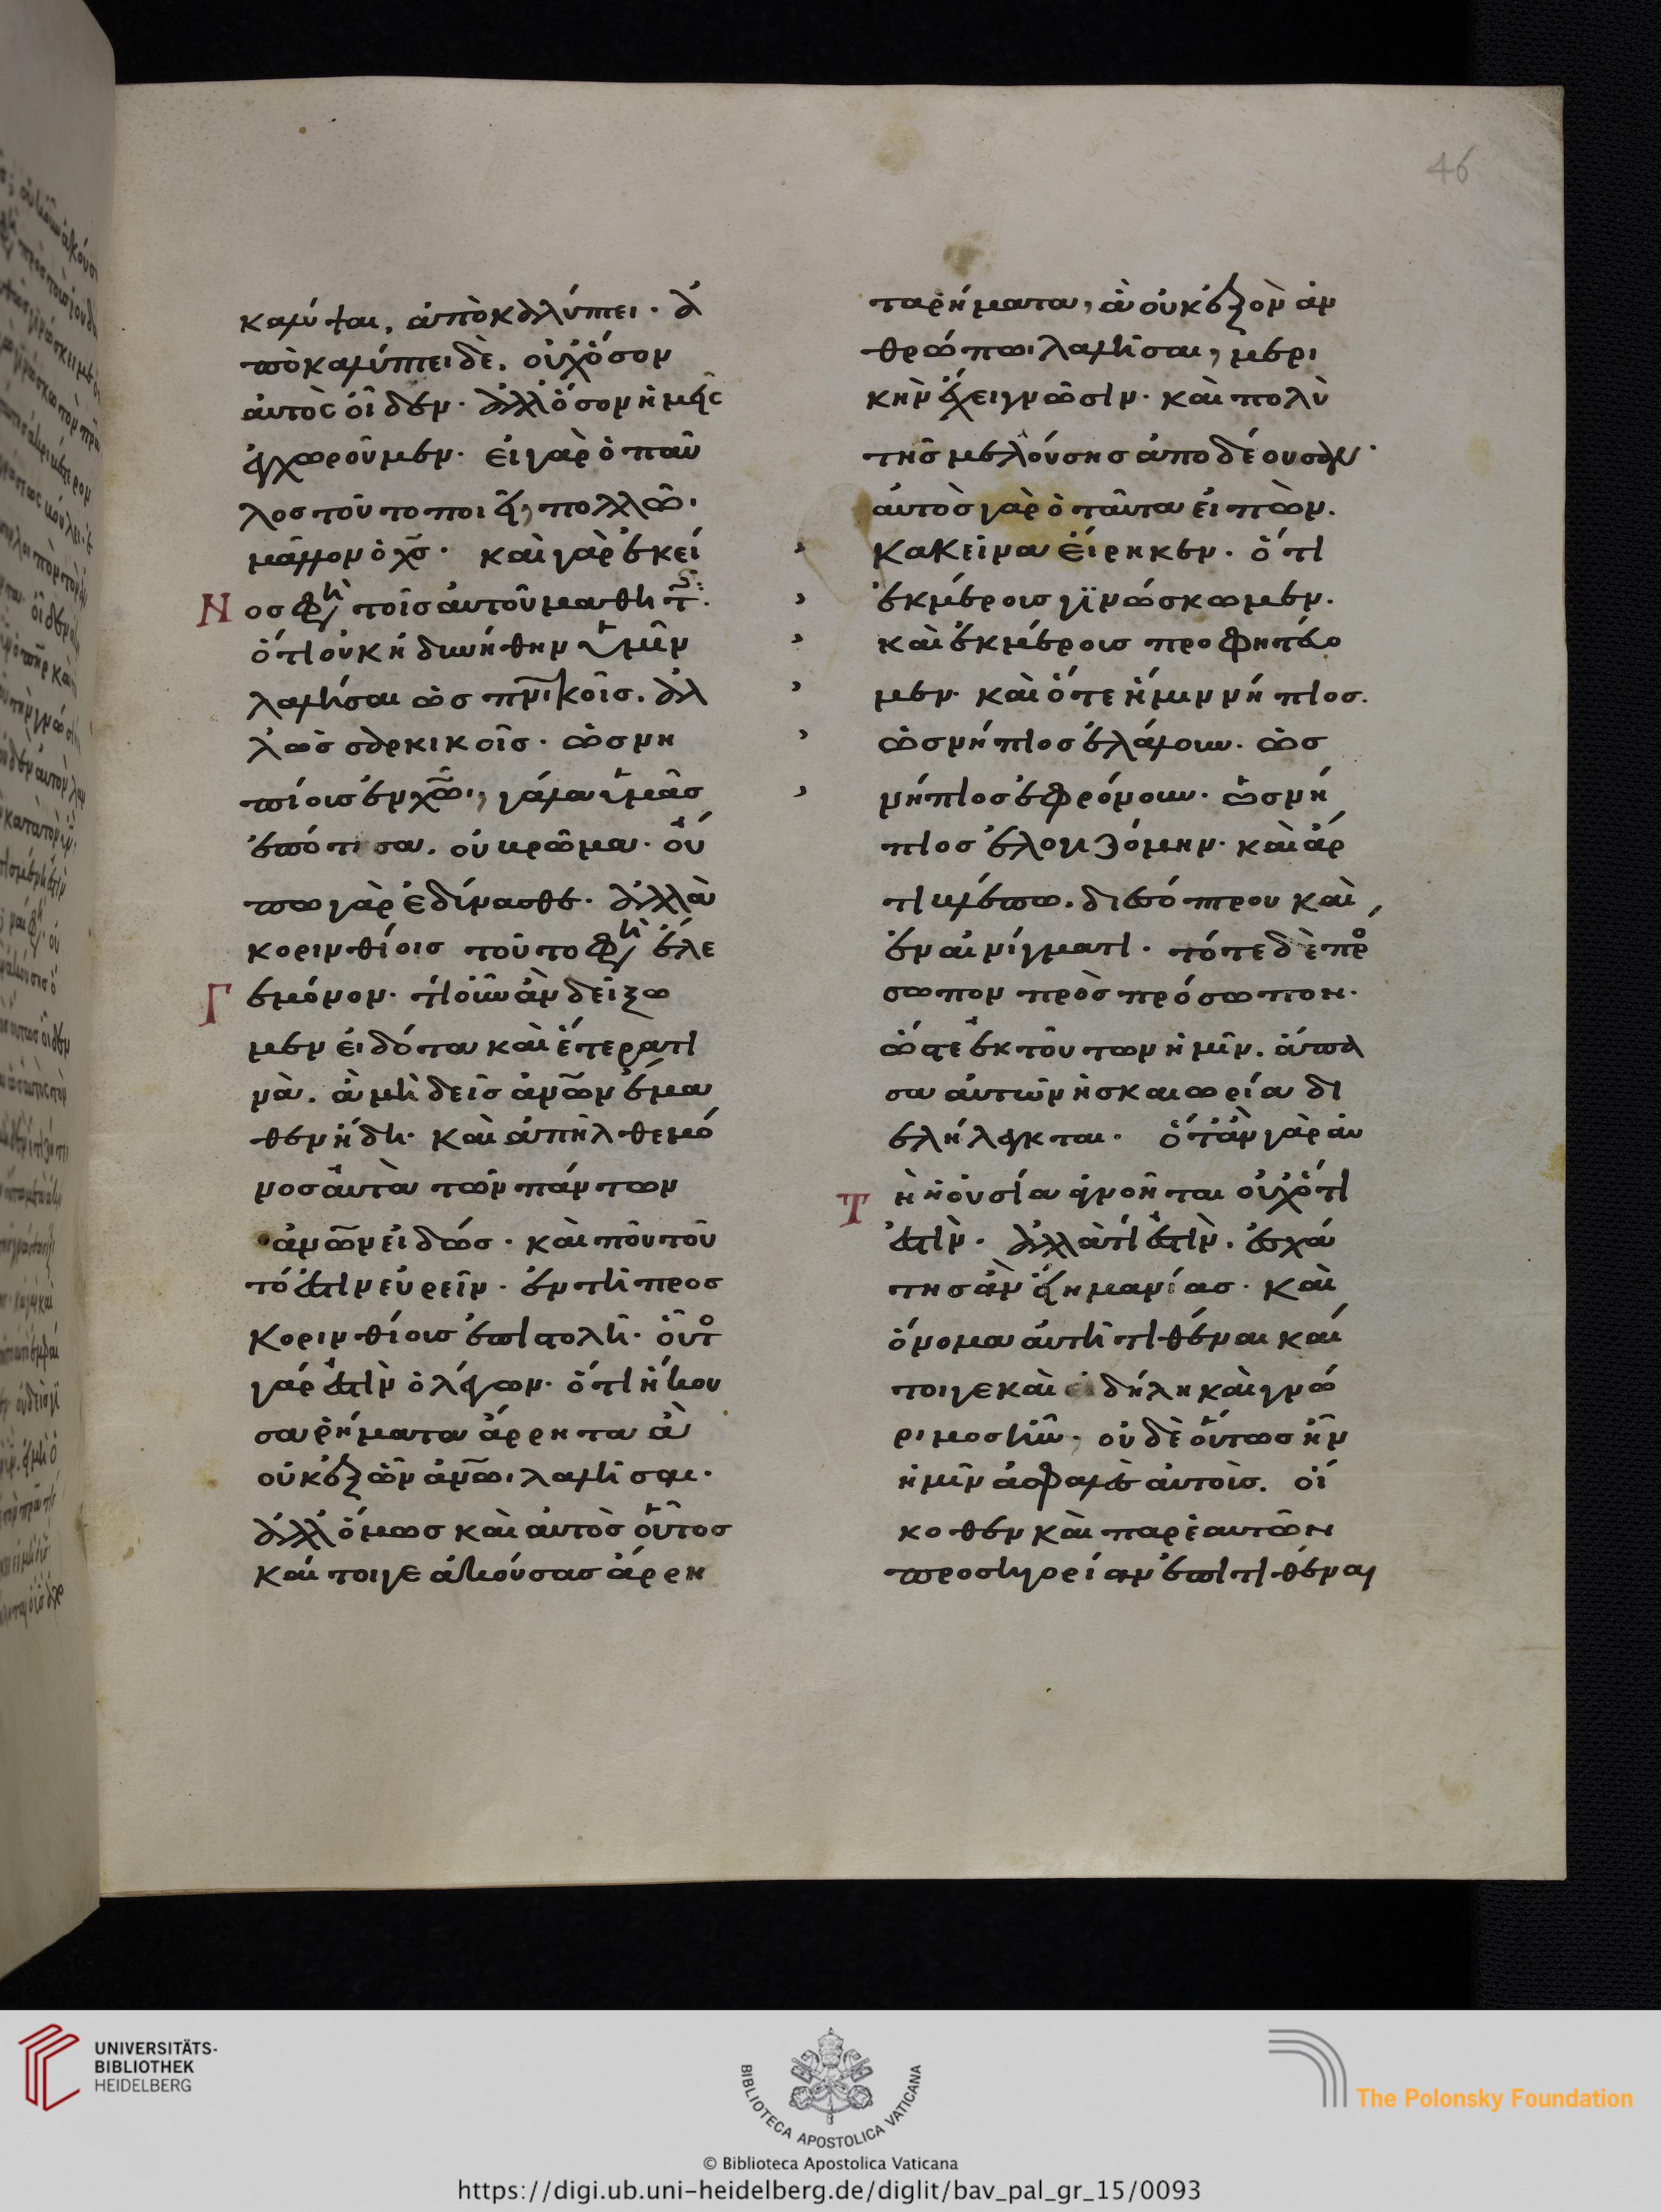 46
καλύψαι, ἀποκαλύπτει. ἀ
ποκαλύπτει δὲ, οὐχ ὅσον
αὐτὸς οἶδεν. ἀλλ ὅσον ἡμεῖς
ἐχωροῦμεν. εἰ γὰρ ὁ παῦ
λος τοῦτο ποιεῖ, πολλῶι
μᾶλλον ὁ χς. καὶ γὰρ ἐκεῖ
νος φη τοῖς αὐτοῦ μαθητ
ὅτι οὐκ ἠδυνήθην ὑμῖν
λαλῆσαι ὡς πνικοῖς. ἀλ
λ ὡς σαρκικοῖς. ὡς νη
πίοις ἐν χω, γάλα ὑμᾶς
ἐπότισα, οὐ βρῶμα. οὔ
πω γὰρ ἐδύνασθε. ἀλλὰ
κορινθίοις τοῦτο φη ἔλε
γε μόνον. τί οὖν ἂν δείξω
μεν εἰδότα καὶ ἕτερά τι
νὰ, ἃ μηδεὶς ἀνων ἔμα
θεν ἤδη. καὶ ἀπῆλθε μό
νος αὐτὰ τῶν πάντων
ἀνων εἰδώς. καὶ ποῦ τοῦ
τό ἐστιν εὑρεῖν. ἐν τῆι προς
κορινθίοις ἐπιστολῆι. οὗτο
γάρ ἐστιν ὁ λέγων. ὅτι ἤκου
σα ῥήματα ἄρρητα ἃ
οὐκ ἐξὸν ἀνω λαλῆσαι.
ἀλλ ὅμως καὶ αὐτὸς οὗτος
καί τοιγε ἀκούσας ἄρρη
τα ῥήματα, ἃ οὐκ ἐξὸν ἀν
θρώπωι λαλῆσαι, μερι
κὴν ἔχει γνῶσιν. καὶ πολὺ
τῆς μελλούσης ἀποδέουσαν.
αὐτὸς γὰρ ὁ ταῦτα εἰπὼν.
κακεῖνα εἴρηκεν. ὅτι
ἐκ μέροις γϊνώσκωμεν.
καὶ ἐκ μέροις προφητεύο
μεν. καὶ ὅτε ἤμην νήπιος.
ὡς νήπιος ἐλάλουν. ὡς
νήπιος ἐφρόνουν. ὡς νή
πιος ἐλογιζόμην. καὶ ἄρ
τι βλέπω. δι ἐσόπτρου καὶ
ἐν αἰνίγματι. τότε δὲ προ
σωπον πρὸς πρόσωπον.
ὥστε ἐκ τούτων ἡμῖν. ἅπα
σα αὐτῶν ἡ σκαιωρία δι
ελήλεγκται. ὅταν γὰρ αὐ
τὴ ἡ οὐσία ἀγνοῆται οὐχ ὅτι
ἐστὶν. ἀλλὰ τί ἐστὶν. ἐσχά
της ἂν εἴη μανίας. καὶ
ὄνομα αὐτῆ τιθέναι καί
τοιγε καὶ εἰ δήλη καὶ γνώ
ριμος ἦν, οὐδὲ οὕτως ἦν
ἡμῖν ἀσφαλὲς αὐτοῖς. οἴ
κοθεν καὶ παρ ἑαυτῶν
προσηγορίαν ἐπιτιθέναι
UNIVERSITÄTS-
BIBLIOTHEK
HEIDELBERG
BIBLIOTECA APOSTOLICA VATICANA
The Polonsky Foundation
© Biblioteca Apostolica Vaticana
https://digi.ub.uni-heidelberg.de/diglit/bav_pal_gr_15/0093